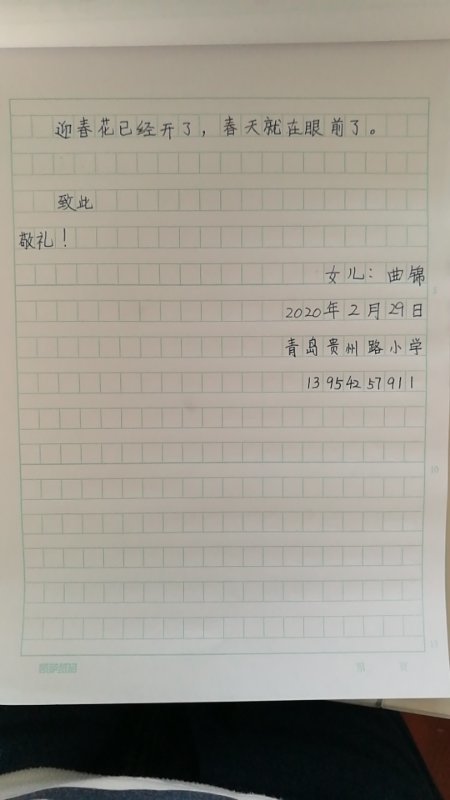 迎春花已经开了，春天就在眼前了。
致此
敬礼！
女儿：曲锦
2020年2月29日
青岛贵州路小学
13954257911
10
15
第 页